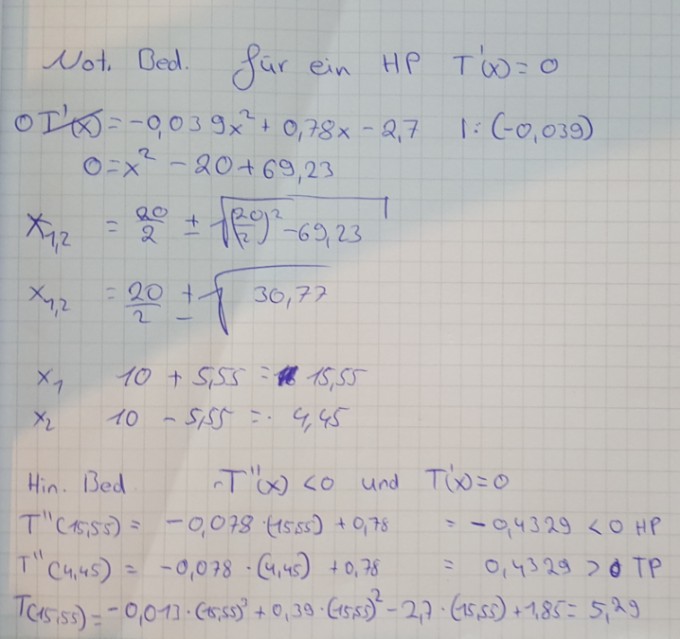 Not. Bed. für ein HP T'(x) = 0
0 T'(x) = -0,039x² + 0,78x - 2,7 |: (-0,039)
0 = x² - 20 + 69,23
x₁,₂ = 20/2 ± √((20/2)² - 69,23)
x₁,₂ = 20/2 ± √30,77
x₁ 10 + 5,55 = 15,55
x₂ 10 - 5,55 = 4,45
Hin. Bed. T''(x) < 0 und T'(x) = 0
T''(15,55) = -0,078 · (15,55) + 0,78 = -0,4329 < 0 HP
T''(4,45) = -0,078 · (4,45) + 0,78 = 0,4329 > 0 TP
T(15,55) = -0,013 · (15,55)³ + 0,39 · (15,55)² - 2,7 · (15,55) + 1,85 = 5,29